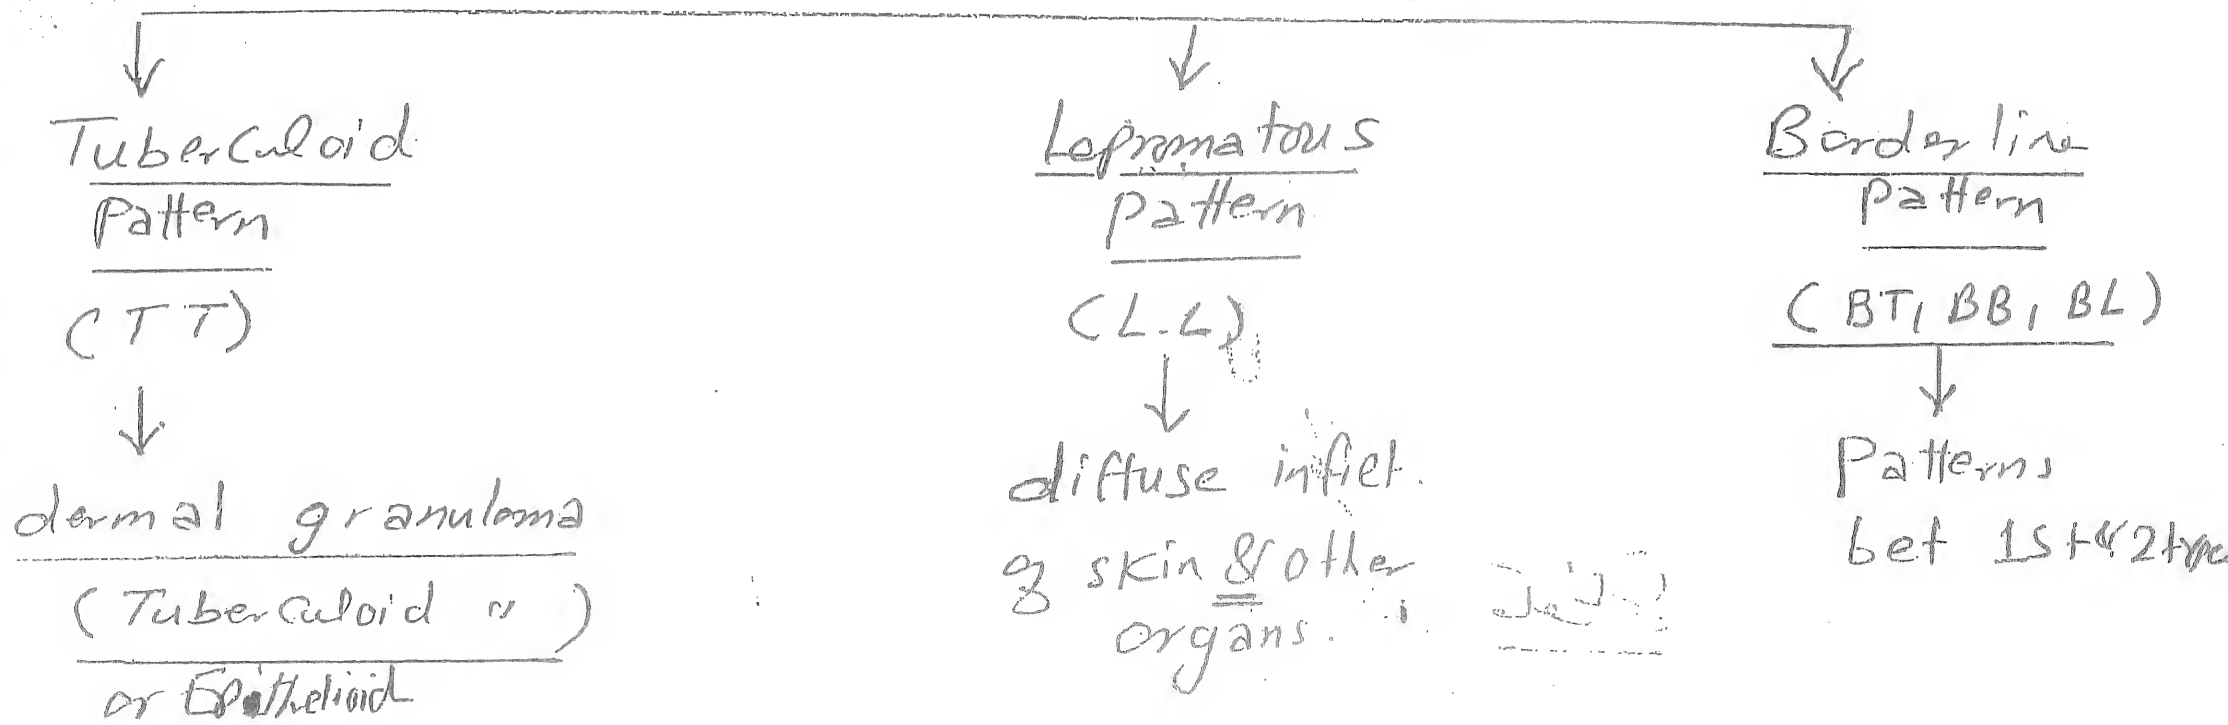 Tuberculoid
Pattern
(TT)
dermal granuloma
(Tuberculoid 〃)
or Epithelioid
Lepromatous
Pattern
(L.L)
diffuse infilt.
of skin & other
organs.
Borderline
Pattern
(BT, BB, BL)
Patterns
bet 1st & 2 type